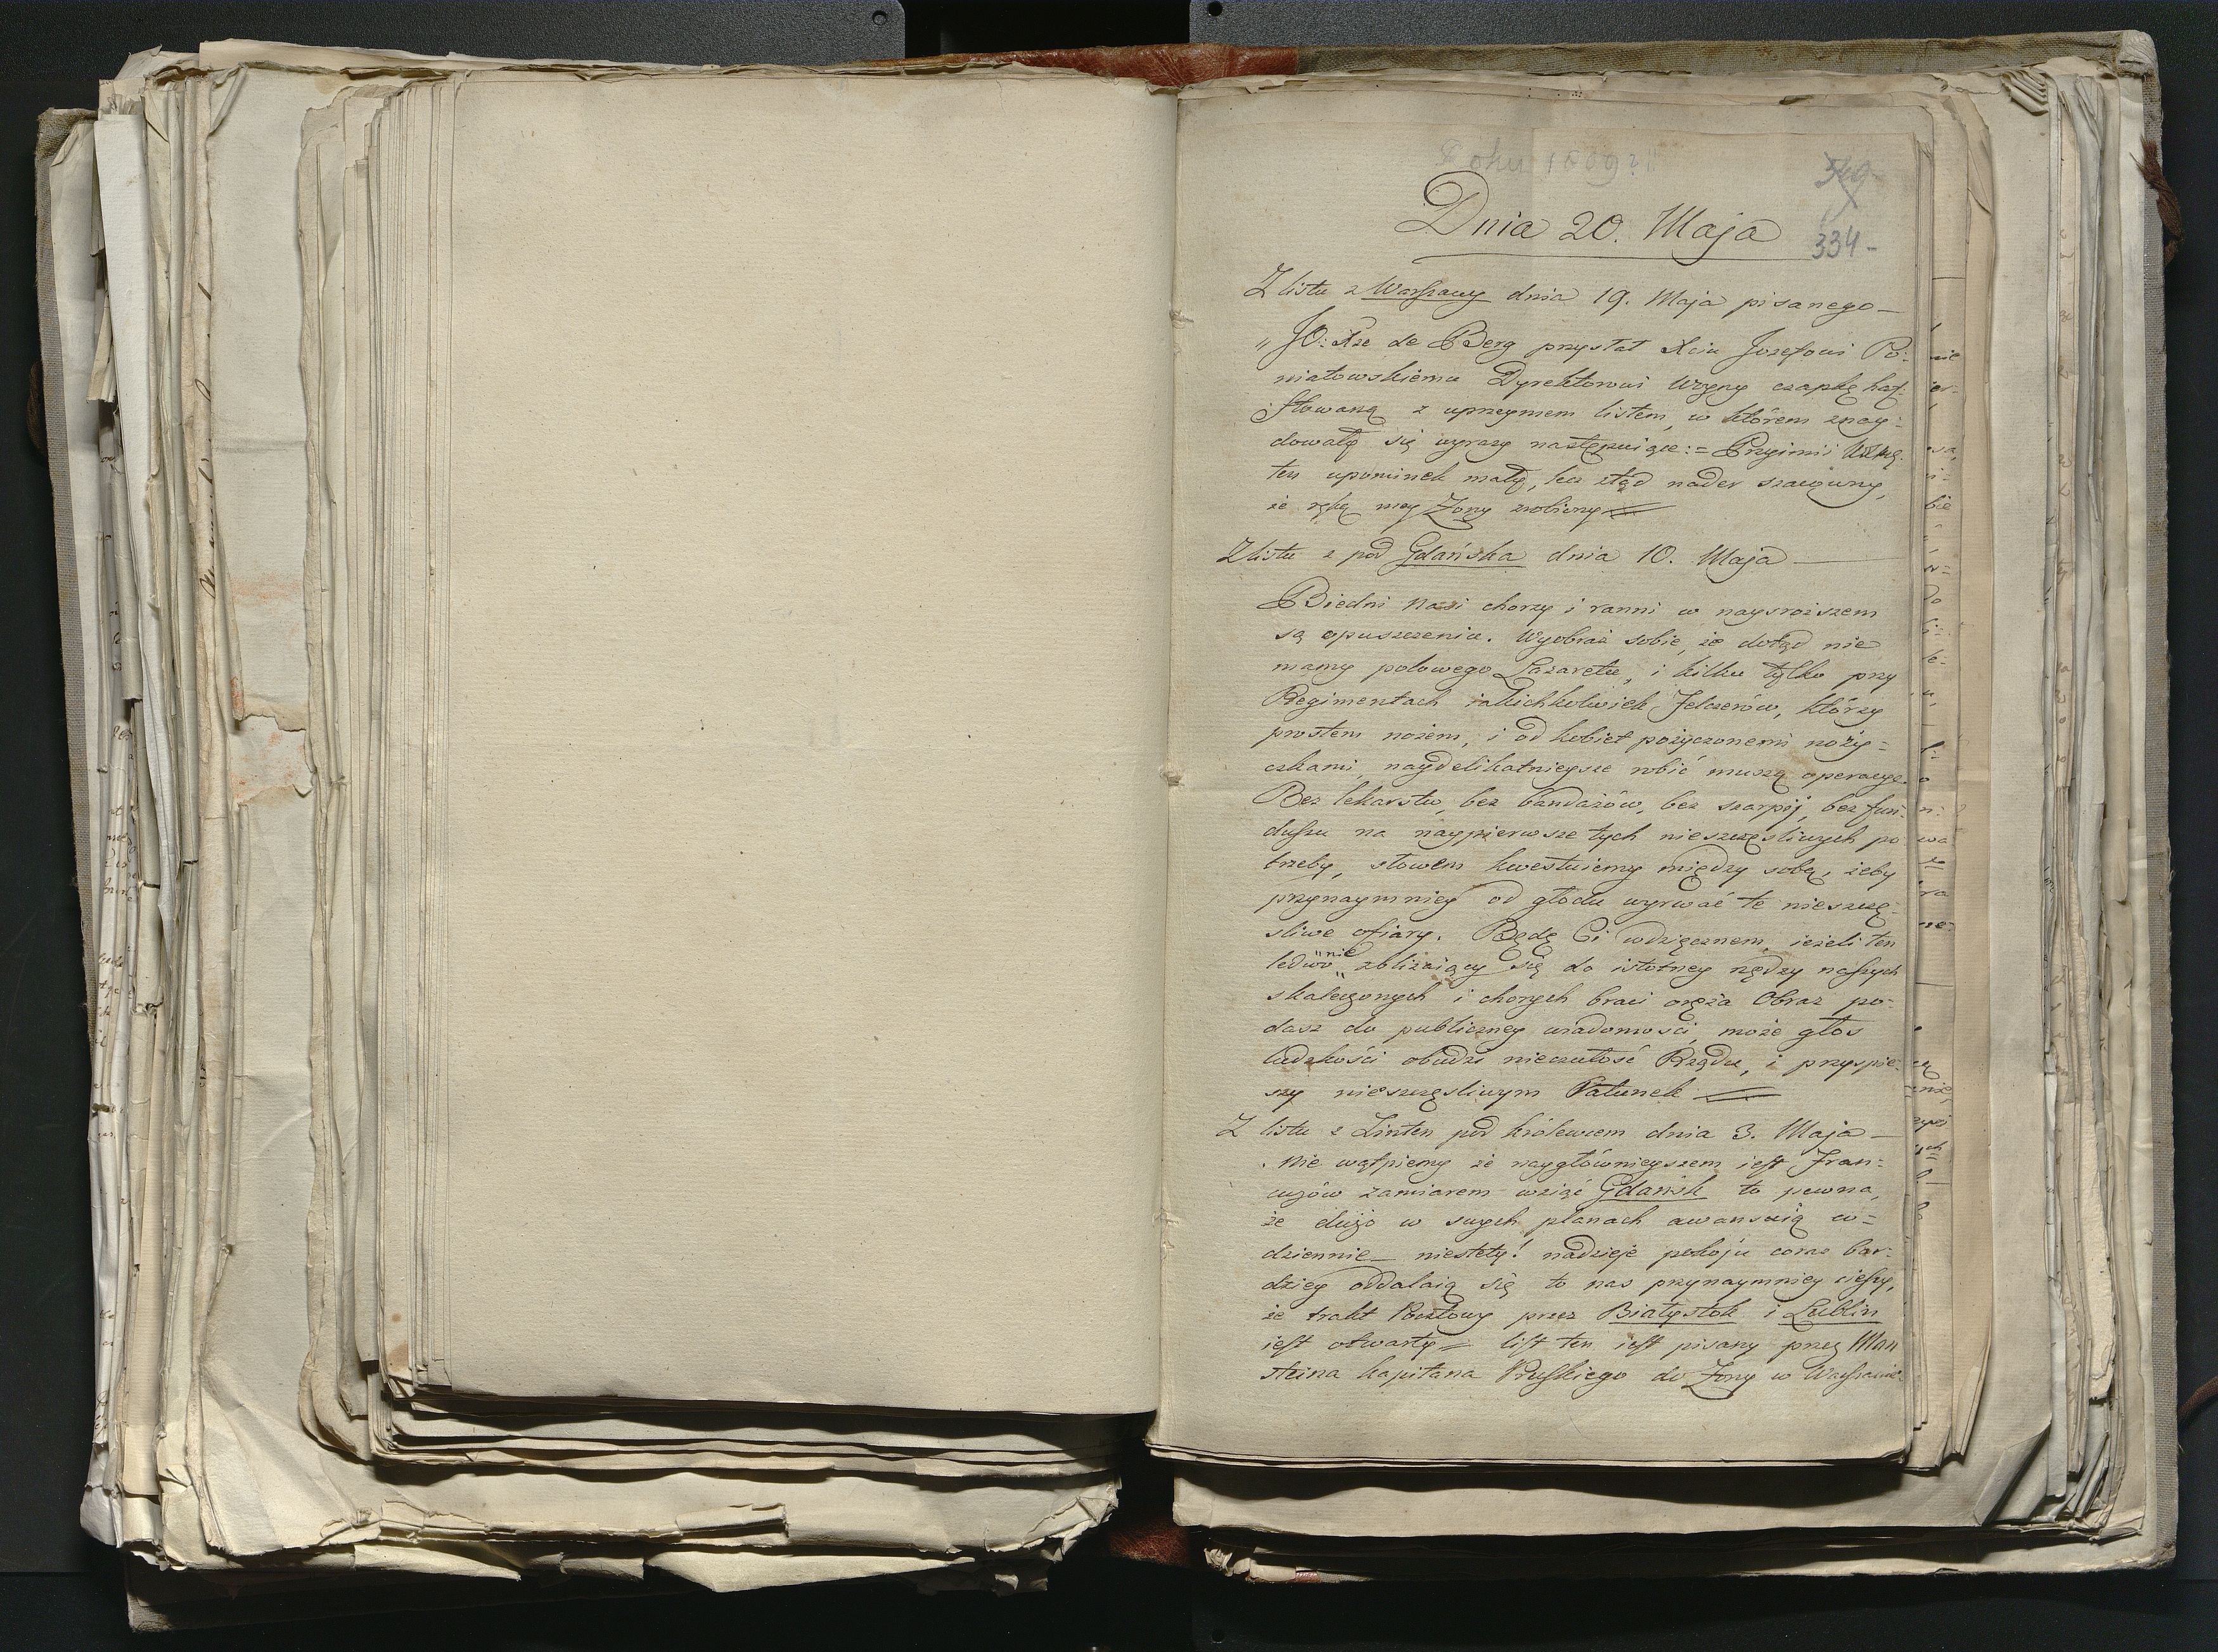 Roku 1809
549
Dnia 20. Maja
334-
Z listu z Warszawy dnia 19. Maja pisanego
„JO: Xże de Berg przysłał Xciu Jozefowi Po:
niatowskiemu Dyrektorowi Woyny czapkę haf:
ftowaną z uprzeymem listem, w którem znay:
dowały się wyrazy następuiące:= Przyimii
ten upominek mały, lecz ztąd nader szacowny,
że ręką mey Żony zrobiony
Z listu z pod Gdańska dnia 10. Maja
Biedni nasi chorzy i ranni w naysroższem
są opuszczeniu. Wyobraź sobie, że dotąd nie
mamy polowego Lazaretu, i kilku tylko przy
Regimentach iakichkolwiek Felczerów, którzy
prostem nożem, i od kobiet pożyczonemi noży=
czkami, naydelikatnieysze robić muszą operacye.
Bez lekarstw, bez bandażów, bez szarpij, bez fun:
duszu na naypierwsze tych nieszczęsliwych po
trzeby, słowem kwestuiemy między sobą, żeby
przynaymniey od głodu wyrwać te nieszczę:
sliwe ofiary. Będę Ci wdzięcznem, ieżeli ten
ledwo "nie" zbliżaiący się do istotney nędzy naszych
skaleczonych i chorych braci oręża Obraz po:
dasz do publiczney wiadomości, może głos
ludzkości obudzi nieczułość Rządu, i przyspie:
szy nieszczęsliwym Ratunek
Z listu z Linten pod Królewcem dnia 3. Maja
. Nie wątpiemy że naygłównieyszem iest Fran:
cuzów zamiarem wziąć Gdańsk to pewna,
że dużo w swych planach awansuią co=
dziennie niestety! nadzieje pokoju coraz bar:
dziey oddalaią się to nas przynaymniey cieszy,
że trakt Pocztowy przez Białystok i Lublin
iest otwarty= list ten iest pisany przez Man
steina kapitana Pruskiego do Żony w Warszawie